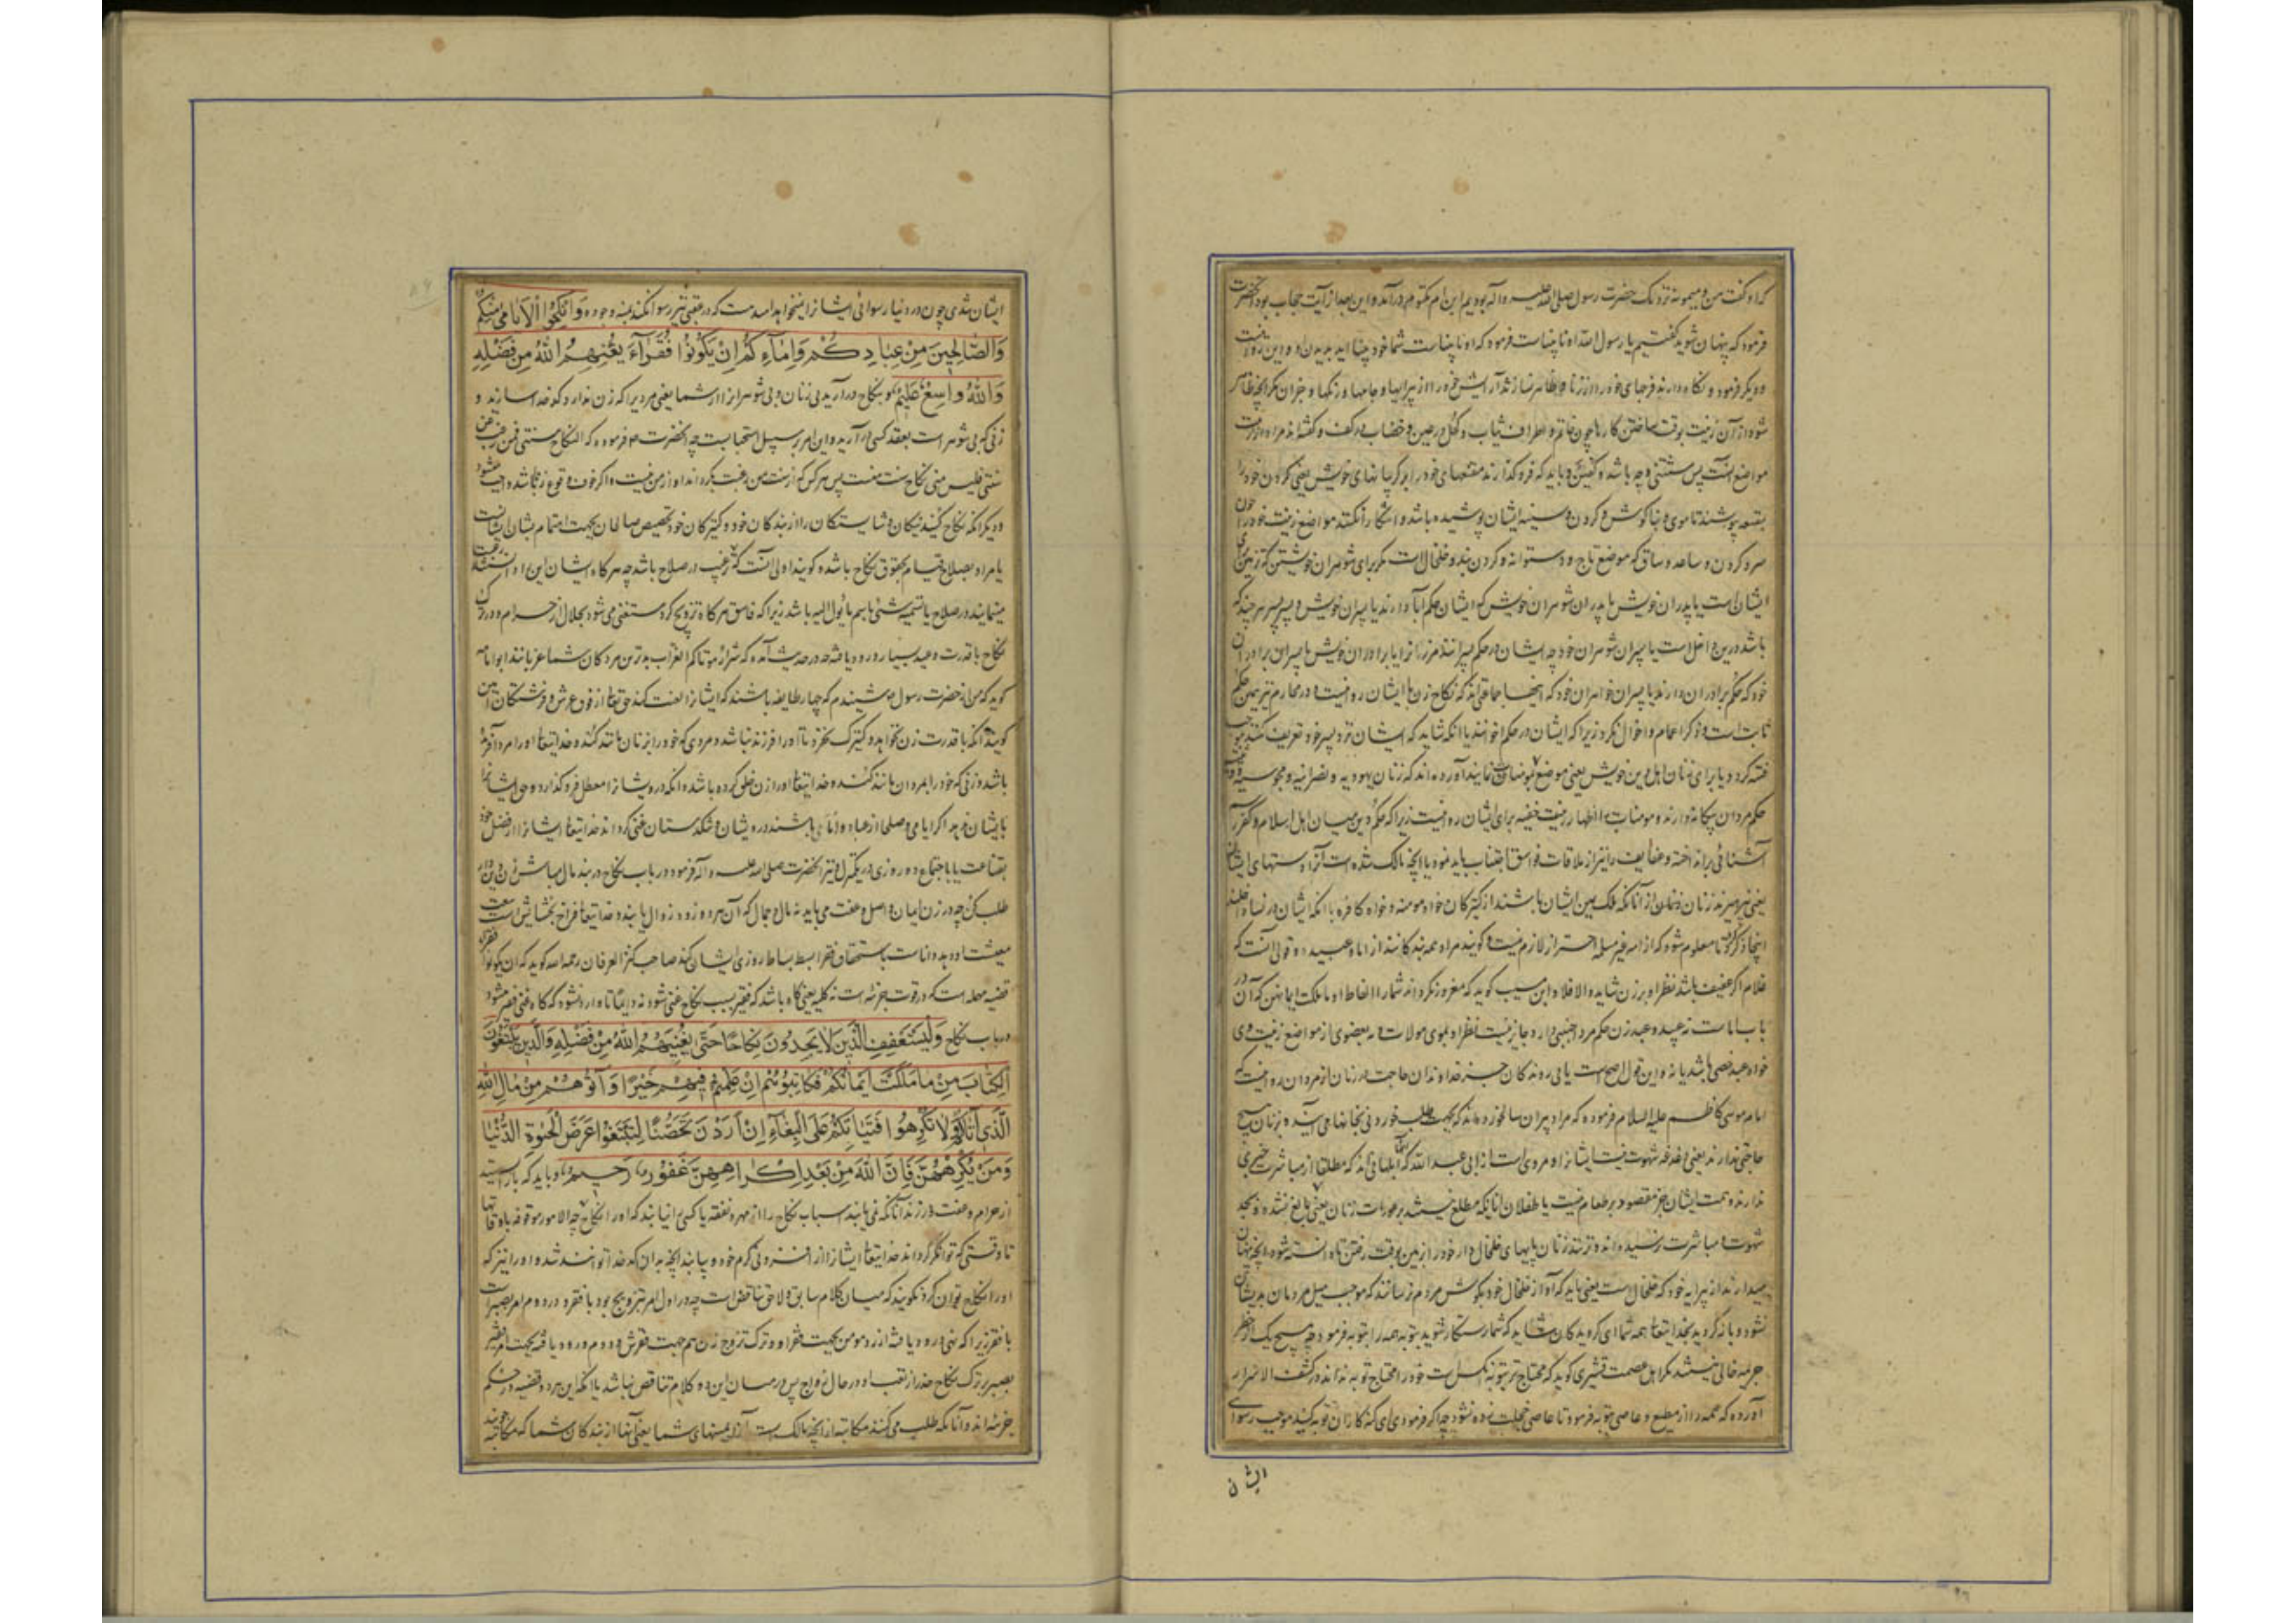 که او گفت من و میمونه نزدیک حضرت رسول صلی الله علیه و آله بودیم ابن ام مکتوم درآمد و این بعد از آیت حجاب بود آنحضرت
فرمود که پنهان شوید گفتیم یا رسول الله او نابیناست فرمود که او نابیناست شما خود بینااید
و دیگر فرمود و نگاه دارند فرجهای خود را از زنا و ظاهر نسازند آرایش خود را از پیرایها و جامها و رنگها و جز آن مگر آنچه ظاهر
شود از آن زینت بوقت ساختن کارها چون خاتم و اطراف ثیاب و کحل در عین و خضاب در کف و گفته‌اند مراد از زینت
مواضع آنست پس مستثنی وجه باشد و کفین و باید که فرو گذارند مقنعهای خود را بر گریبانهای خویش یعنی گردن خود را
بمقنعه پوشند تا موی و بناگوش و گردن و سینه ایشان پوشیده باشد و آشکارا نکنند مواضع زینت خود را چون
سر و گردن و ساعد و ساق که موضع تاج و دستوانه و گردن بند و خلخال است مگر برای شوهران خویشتن که زینت برای
ایشان است یا پدران خویش یا پدران شوهران خویش که ایشان حکم آبا دارند یا پسران خویش و پسر پسر هر چند که
باشد درین داخل است یا پسران شوهران خود چه ایشان در حکم پسرانند مر زنانرا یا برادران خویش یا پسران برادران
خود که حکم برادران دارند یا پسران خواهران خود که اینها جماعتی‌اند که نکاح زن با ایشان روا نیست و در محارم نیز همین حکم
ثابت است و ذکر اعمام و اخوال نکرد زیرا که ایشان در حکم اخوانند یا آنکه شاید که ایشان نزد پسر خود تعریف کنند
فتنه گردد یا برای زنان اهل دین خویش یعنی مؤمنات آورده‌اند که زنان یهودیه و نصرانیه و مجوسیه
حکم مردان بیگانه دارند و مومنات را اظهار زینت خفیه برای ایشان روا نیست زیرا که حکم دین میان اهل اسلام و کفر
آشنائی برانداخته و عفایف را نیز از ملاقات فواسق اجتناب باید نمود یا آنچه مالک شده است آنرا دستهای ایشان
یعنی نپرهیزند زنان از آنانکه ملک یمین ایشان باشند از کنیزکان خواه مومنه و خواه کافره با آنکه ایشان در نساء داخلند
اینجا ذکر کرد تا معلوم شود که از امه غیر مسلمه احتراز لازم نیست و گویند مراد همه بندگانند از اماء و عبید و قولی آنست که
غلام اگر عفیف باشد نظر او بر زن شاید و الا فلا و ابن مسیب گوید که مغرور نگرداند شما را الفاظ او ما ملکت ایمانهن که آن در
باب اماست نه عبید و عبد زن حکم مرد اجنبی دارد و جایز نیست نظر او بموی مولات و نه بعضوی از مواضع زینت وی
خواه عبد خصی باشد یا نه و این قول اصح است یا پی روندگان جز خداوندان حاجت در زنان از مردان روا نیست که
امام موسی کاظم علیه السلام فرموده که مراد پیران سالخورده‌اند که بجهت طلب خوردنی بخانها می‌آیند و بزنان هیچ
حاجتی ندارند یعنی دغدغه شهوت نیست ایشانرا و مروی است از ابی عبد الله که ابلهانی‌اند که مطلقا از مباشرت خبری
ندارند و همت ایشان جز مقصود بر طعام نیست یا طفلان انانیکه مطلع نیستند بر عورات زنان یعنی بالغ نشده و بحد
شهوت و مباشرت نرسیده‌اند و نزنند زنان پایهای خلخال دار خود را بزمین بوقت رفتن تا دانسته شود آنچه پنهان
میدارند از پیرایه خود که خلخال است یعنی باید که آواز خلخال خود بگوش مردم نرسانند که موجب میل مردمان بدیشان
نشود و بازگردید بخدایتعالی همه شما ای گرویدگان شاید که شما رستگار شوید بتوبه همه را بتوبه فرمود چه هیچ یک از
جرمه خالی نیستند مگر اهل عصمت قشیری گوید که محتاج‌تر بتوبه آنکس است که خود را محتاج توبه نداند در کشف الاسرار
آورده که همه را از مطیع و عاصی بتوبه فرمود تا عاصی خجلت زده نشود چه اگر فرمودی ای گنه کاران توبه کنید موجب رسوائی
ایشان
ایشان شدی چون در دنیا رسوائی ایشانرا نمیخواهد امید است که در عقبی نیز رسوا نکند بمنه وجوده وَأَنْكِحُوا الْأَيَامَى مِنْكُمْ
وَالصَّالِحِينَ مِنْ عِبَادِكُمْ وَإِمَائِكُمْ إِنْ يَكُونُوا فُقَرَاءَ يُغْنِهِمُ اللَّهُ مِنْ فَضْلِهِ
وَاللَّهُ وَاسِعٌ عَلِيمٌ و بنکاح درآرید بی زنان و بی شوهرانرا از شما یعنی مردیرا که زن ندارد کدخدا سازید و
زنی که بی شوهر است بعقد کسی درآرید و این امر بر سبیل استحبابست چه آنحضرت فرموده که النکاح سنتی فمن رغب عن
سنتی فلیس منی نکاح سنت منست پس هر کس که از سنت من رغبت بگرداند او از من نیست و اگر خوف وقوع زنا باشد واجب میشود
و دیگر آنکه نکاح کنید نیکان و شایستگان را از بندگان خود و کنیزکان خود تخصیص صالحان بجهت اهتمام بشان ایشانست
یا مراد بصلاح قیام بحقوق نکاح باشد و گویند اولی آنست که ترغیب در صلاح باشد چه هر گاه ایشان این را دانستند رغبت
مینمایند در صلاح یا تسمیه شئ باسم ما یؤل الیه باشد زیرا که فاسق هر گاه تزویج کرد مستغنی می‌شود بحلال از حرام و در ترک
نکاح با قدرت وعید بسیار ورود یافته و در حدیث آمده که شرار موتاکم العزاب بدترین مردگان شما عزبانند ابو امامه
گوید که من از حضرت رسول شنیدم که چهار طایفه باشند که ایشانرا لعنت کند حقتعالی از فوق عرش و فرشتگان آمین
گویند آنکه با قدرت زن نخواهد و کنیزک نخرد تا او را فرزند نباشد و مردی که خود را بزنان مانند کند و خدایتعالی او را مرد آفریده
باشد و زنی که خود را بمردان مانند کند و خدایتعالی او را زن خلق کرده باشد و آنکه درویشانرا معطل فرو گذارد
اگر ایامی و صلحا از عباد و اماء باشند درویشان و تنگدستان غنی گرداند خدایتعالی ایشانرا از فضل خود
بقناعت یا باجتماع دو روزی در یک منزل و نیز آنحضرت صلی الله علیه و آله فرمود در باب نکاح در بند مال مباش
طلب کن چه در زن ایمان و اصل و عفت می‌باید نه مال و جمال که آن هر دو زود زوال یابند و خدایتعالی فراخ بخشایش است
معیشت او دید و داناست باستحقاق فقرا بسط بساط روزی ایشان کند صاحب کنز العرفان رحمه الله گوید که ان یکونوا فقراء
قضیه مهمله است که در قوت جزئیه است نه کلیه یعنی گاه باشد که فقیر بسبب نکاح غنی شود نه دایما تا وارد نشود که گاه غنی فقیر میشود
در باب نکاح وَلْيَسْتَعْفِفِ الَّذِينَ لَا يَجِدُونَ نِكَاحًا حَتَّى يُغْنِيَهُمُ اللَّهُ مِنْ فَضْلِهِ وَالَّذِينَ يَبْتَغُونَ
الْكِتَابَ مِمَّا مَلَكَتْ أَيْمَانُكُمْ فَكَاتِبُوهُمْ إِنْ عَلِمْتُمْ فِيهِمْ خَيْرًا وَآتُوهُمْ مِنْ مَالِ اللَّهِ
الَّذِي آتَاكُمْ وَلَا تُكْرِهُوا فَتَيَاتِكُمْ عَلَى الْبِغَاءِ إِنْ أَرَدْنَ تَحَصُّنًا لِتَبْتَغُوا عَرَضَ الْحَيَوةِ الدُّنْيَا
وَمَنْ يُكْرِهْهُنَّ فَإِنَّ اللَّهَ مِنْ بَعْدِ إِكْرَاهِهِنَّ غَفُورٌ رَحِيمٌ و باید که باز ایستند
از حرام و عفت ورزند آنانکه نمی‌یابند اسباب نکاح را از مهر و نفقه یا کسی را نیابند که او را نکاح چه الامور موقوفه باوقاتها
تا وقتی که توانگر گرداند خدایتعالی ایشانرا از افزونی کرم خود و بیابند آنچه بدان کدخدا توانند شد و او را نیز که
او را نکاح توان کرد نگویند که میان کلام سابق و لاحق تناقض است چه در اول امر بتزویج بود با فقر و در دوم امر بصبر است
با فقر زیرا که نهی ورود یافته از رد مومن بجهت فقر او و ترک تزوج زن هم جهت فقرش و دوم ورود یافته بجهت امر فقیر
بصبر بر ترک نکاح حذر از تعب او در حال زواج پس در میان این دو کلام تناقض نباشد یا آنکه این هر دو قضیه در حکم
جزئیه‌اند و آنانکه طلب می‌کنند مکاتبه از آنچه مالک است آنرا دستهای شما یعنی آنها از بندگان شما که مکاتبه جویند